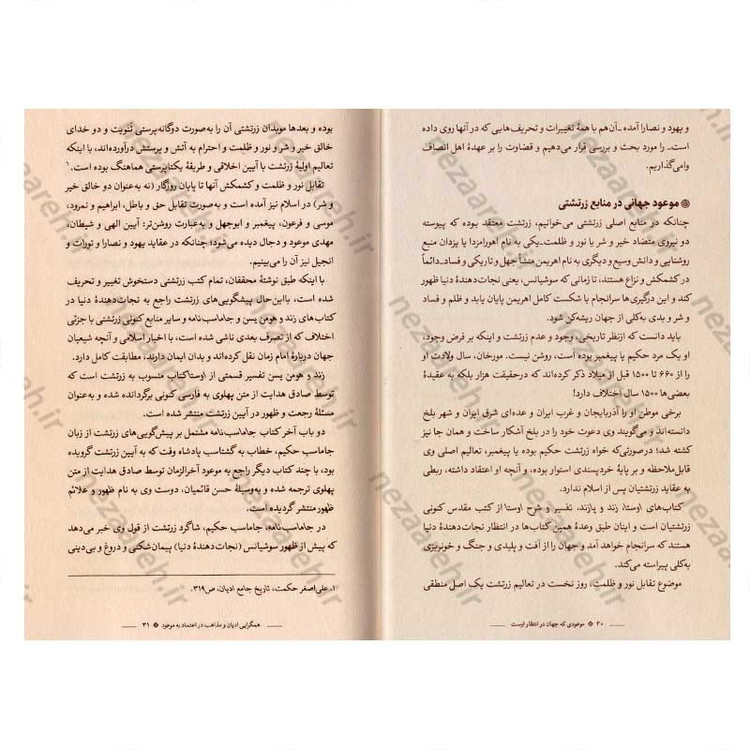 و یهود و نصارا آمده ـ آن‌هم با همهٔ تغییرات و تحریف‌هایی که در آنها روی داده
است ـ را مورد بحث و بررسی قرار می‌دهیم و قضاوت را بر عهدهٔ اهل انصاف
وامی‌گذاریم.
موعود جهانی در منابع زرتشتی
چنانکه در منابع اصلی زرتشتی می‌خوانیم، زرتشت معتقد بوده که پیوسته
دو نیروی متضاد خیر و شر یا نور و ظلمت ـ یکی به نام اهورامزدا یا یزدان منبع
روشنایی و دانش وسیع و دیگری به نام اهریمن منشأ جهل و تاریکی و فساد ـ دائماً
در کشمکش و نزاع هستند، تا زمانی که سوشیانس، یعنی نجات‌دهندهٔ دنیا ظهور
کند و این درگیری‌ها سرانجام با شکست کامل اهریمن پایان یابد و ظلم و فساد
و شر و بدی به‌کلی از جهان ریشه‌کن شود.
باید دانست که ازنظر تاریخی، وجود و عدم زرتشت و اینکه بر فرض وجود،
او یک مرد حکیم یا پیغمبر بوده است، روشن نیست. مورخان، سال ولادت او
را از ۶۶۰ تا ۱۵۰۰ قبل از میلاد ذکر کرده‌اند که درحقیقت هزار بلکه به عقیدهٔ
بعضی‌ها ۱۵۰۰ سال اختلاف دارد!
برخی موطن او را آذربایجان و غرب ایران و عده‌ای شرق ایران و شهر بلخ
دانسته‌اند و می‌گویند وی دعوت خود را در بلخ آشکار ساخت و همان جا نیز
کشته شد؛ درصورتی‌که خواه زرتشت حکیم بوده یا پیغمبر، تعالیم اصلی وی
قابل‌ملاحظه و بر پایهٔ خردپسندی استوار بوده، و آنچه او اعتقاد داشته، ربطی
به عقاید زرتشتیان پس از اسلام ندارد.
کتاب‌های اوستا، زند و پازند، تفسیر و شرح اوستا از کتب مقدس کنونی
زرتشتیان است و اینان طبق وعدهٔ همین کتاب‌ها در انتظار نجات‌دهندهٔ دنیا
هستند که سرانجام خواهد آمد و جهان را از آفت و پلیدی و جنگ و خونریزی
به‌کلی پیراسته می‌کند.
موضوع تقابل نور و ظلمت، روز نخست در تعالیم زرتشت یک اصل منطقی
۳۰ موعودی که جهان در انتظار اوست
بوده و بعدها موبدان زرتشتی آن را به‌صورت دوگانه‌پرستی ثنویت و دو خدای
خالق خیر و شر و نور و ظلمت و احترام به آتش و پرستش درآورده‌اند، با اینکه
تعالیم اولیهٔ زرتشت با آیین اخلاقی و طریقهٔ یکتاپرستی هماهنگ بوده است.۱
تقابل نور و ظلمت و کشمکش آنها تا پایان روزگار (نه به‌عنوان دو خالق خیر
و شر) در اسلام نیز آمده است و به‌صورت تقابل حق و باطل، ابراهیم و نمرود،
موسی و فرعون، پیغمبر و ابوجهل و به‌عبارت روشن‌تر: آیین الهی و شیطان،
مهدی موعود و دجال دیده می‌شود؛ چنانکه در عقاید یهود و نصارا و تورات و
انجیل نیز آن را می‌بینیم.
با اینکه طبق نوشتهٔ محققان، تمام کتب زرتشتی دستخوش تغییر و تحریف
شده است، بااین‌حال پیشگویی‌های زرتشت راجع به نجات‌دهندهٔ دنیا در
کتاب‌های زند و هومن یسن و جاماسب‌نامه و سایر منابع کنونی زرتشتی با جزئی
اختلاف که از تصرف بعدی ناشی شده است، با اخبار اسلامی و آنچه شیعیان
جهان دربارهٔ امام زمان نقل کرده‌اند و بدان ایمان دارند، مطابقت کامل دارد.
زند و هومن یسن تفسیر قسمتی از اوستا کتاب منسوب به زرتشت است که
توسط صادق هدایت از متن پهلوی به فارسی کنونی برگردانده شده و به‌عنوان
مسئلهٔ رجعت و ظهور در آیین زرتشت منتشر شده است.
دو باب آخر کتاب جاماسب‌نامه مشتمل بر پیش‌گویی‌های زرتشت از زبان
جاماسب حکیم، خطاب به گشتاسب پادشاه وقت که به آیین زرتشت گرویده
بود، با چند کتاب دیگر راجع به موعود آخرالزمان توسط صادق هدایت از متن
پهلوی ترجمه شده و به‌وسیلهٔ حسن قائمیان، دوست وی به نام ظهور و علائم
ظهور منتشر گردیده است.
در جاماسب‌نامه، جاماسب حکیم، شاگرد زرتشت از قول وی خبر می‌دهد
که پیش از ظهور سوشیانس (نجات‌دهندهٔ دنیا) پیمان‌شکنی و دروغ و بی‌دینی
۱. علی‌اصغر حکمت، تاریخ جامع ادیان، ص۳۱۹.
همگرایی ادیان و مذاهب در اعتماد به موعود ۳۱
nezaareh.ir